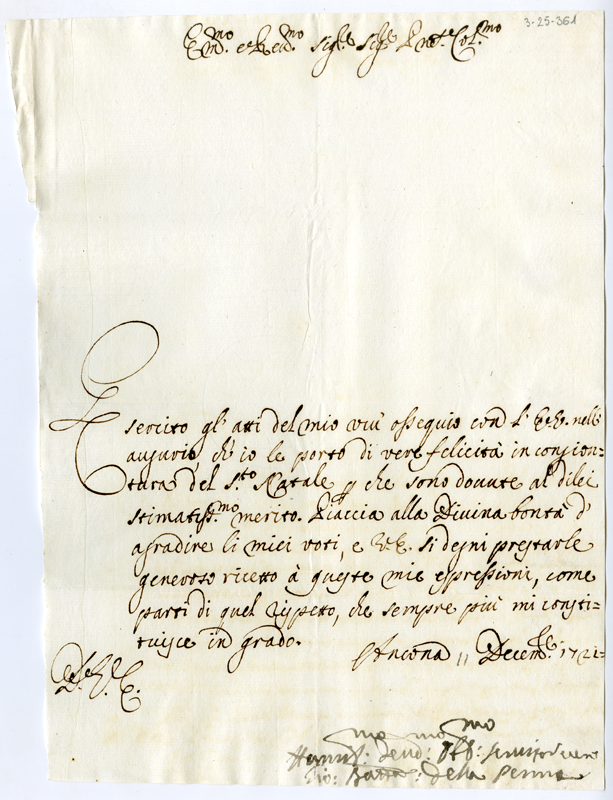 3-25-361
Em.mo e Reu.mo Sig.re Sig.re Pne Col.mo
Esercito gl' atti del mio più ossequio con l' E.V. nell'
augurio, ch' io le porto di vere felicità in congion=
tura del S.to Natale che sono douute al di lei
stimatiss.mo merito. Piaccia alla Divina bontà d'
agradire li miei voti, e V.E. si degni prestarle
generoso ricetto à queste mie espressioni, come
parti di quel rispetto, che sempre più mi consti=
tuisce in grado.
Ancona 11 Decem.re 1721=
D. V. E.
Hum.mo Deuo.mo Obb.mo seruitore uero
Gio: Batta: della Penna